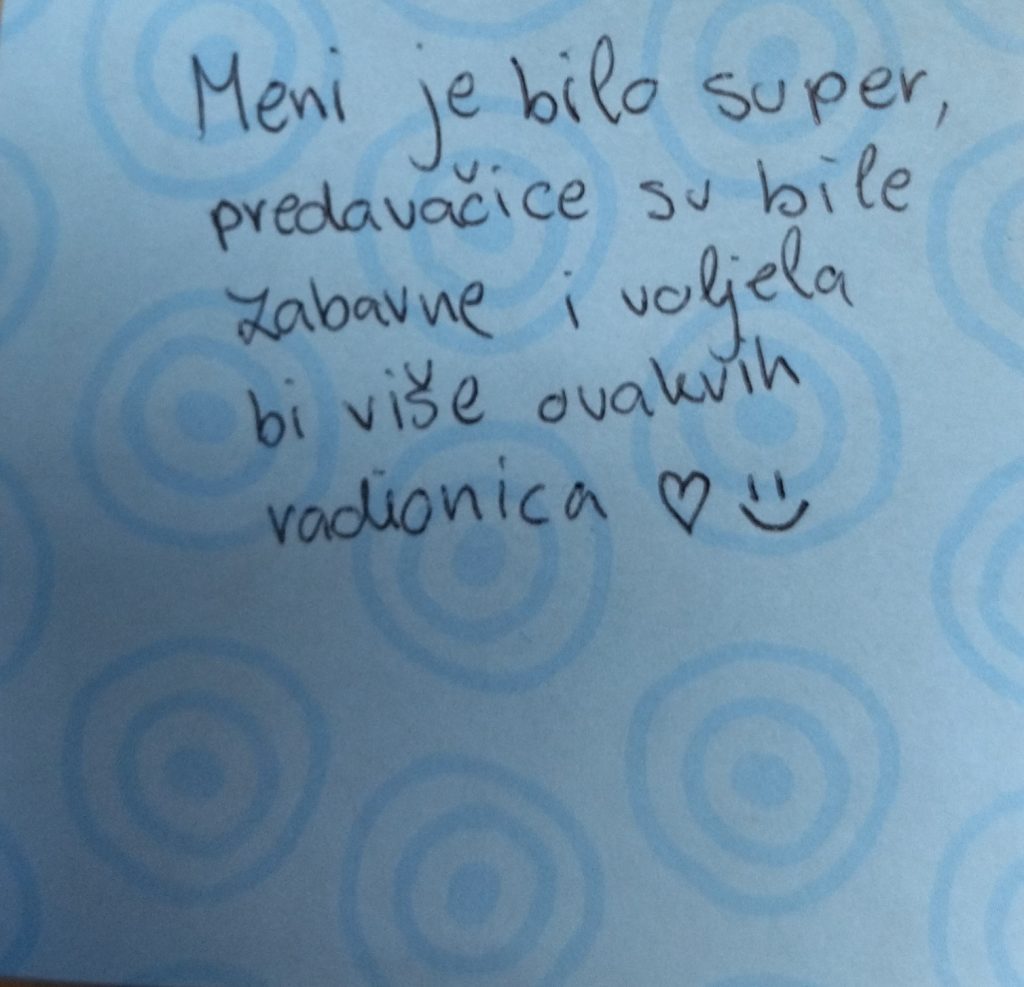 Meni je bilo super,
predavačice su bile
zabavne i voljela
bi više ovakvih
radionica ♡ :)